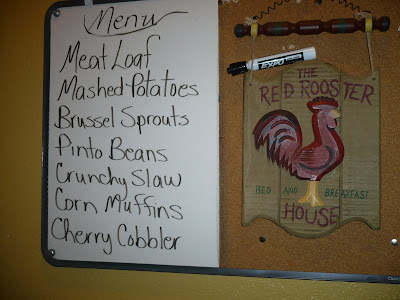 Menu
Meat Loaf
Mashed Potatoes
Brussel Sprouts
Pinto Beans
Crunchy Slaw
Corn Muffins
Cherry Cobbler
EXPO
THE
RED ROOSTER
BED AND BREAKFAST
HOUSE